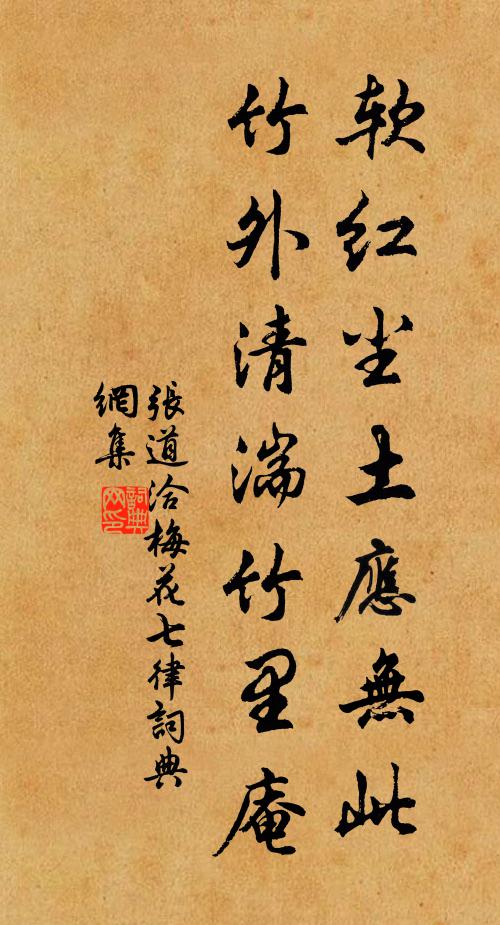 软红尘土應無此
竹外清湍竹里庵
張道洽梅花七律詞典
網集
詞典
网印